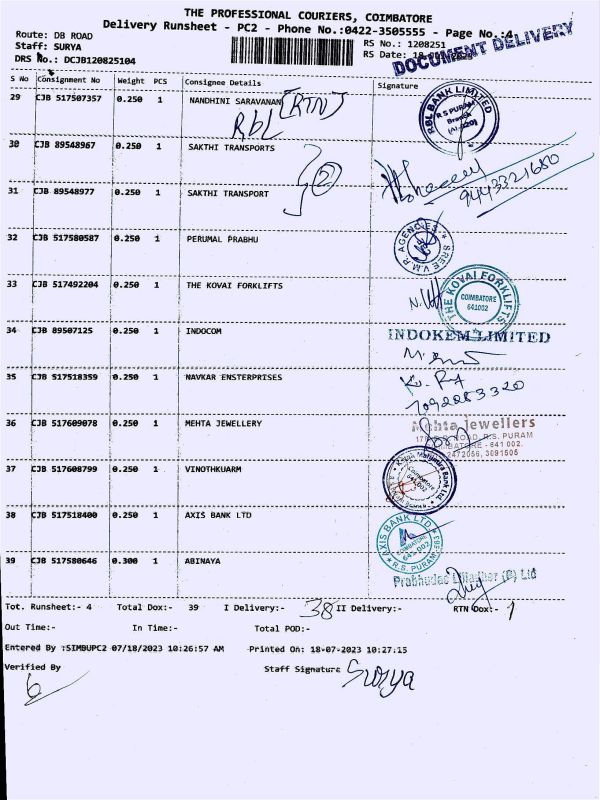 THE PROFESSIONAL COURIERS, COIMBATORE
Delivery Runsheet - PC2 - Phone No.:0422-3505555 - Page No.:4
Route: DB ROAD
Staff: SURYA
DRS No.: DCJB120825104
RS No.: 1208251
RS Date:
DOCUMENT DELIVERY
S No Consignment No Weight PCS Consignee Details Signature
29 CJB 517507357 0.250 1 NANDHINI SARAVANAN (RTN)
Rbl
RBL BANK LIMITED
R S PURAM
Branch
30 CJB 89548967 0.250 1 SAKTHI TRANSPORTS
2
9443321680
31 CJB 89548977 0.250 1 SAKTHI TRANSPORT
32 CJB 517580587 0.250 1 PERUMAL PRABHU
SREE V.M.R. AGENCIES
33 CJB 517492204 0.250 1 THE KOVAI FORKLIFTS
THE KOVAI FORKLIFTS
COIMBATORE
641002
34 CJB 89507125 0.250 1 INDOCOM
INDOKEM LIMITED
35 CJB 517518359 0.250 1 NAVKAR ENSTERPRISES
36 CJB 517609078 0.250 1 MEHTA JEWELLERY
Mehta Jewellers
ROAD, R.S. PURAM
COIMBATORE - 641 002.
2472056, 3091505
37 CJB 517608799 0.250 1 VINOTHKUARM
Kotak Mahindra Bank Ltd.
Coimbatore
641 002
38 CJB 517518400 0.250 1 AXIS BANK LTD
AXIS BANK LTD
COIMBATORE
641 002
R.S. PURAM
39 CJB 517580646 0.300 1 ABINAYA
Prabhudas Lilladher (P) Ltd
Tot. Runsheet:- 4 Total Dox:- 39 I Delivery:- 38 II Delivery:- RTN Dox:- 1
Out Time:- In Time:- Total POD:-
Entered By :SIMBUPC2 07/18/2023 10:26:57 AM Printed On: 18-07-2023 10:27:15
Verified By Staff Signature Surya